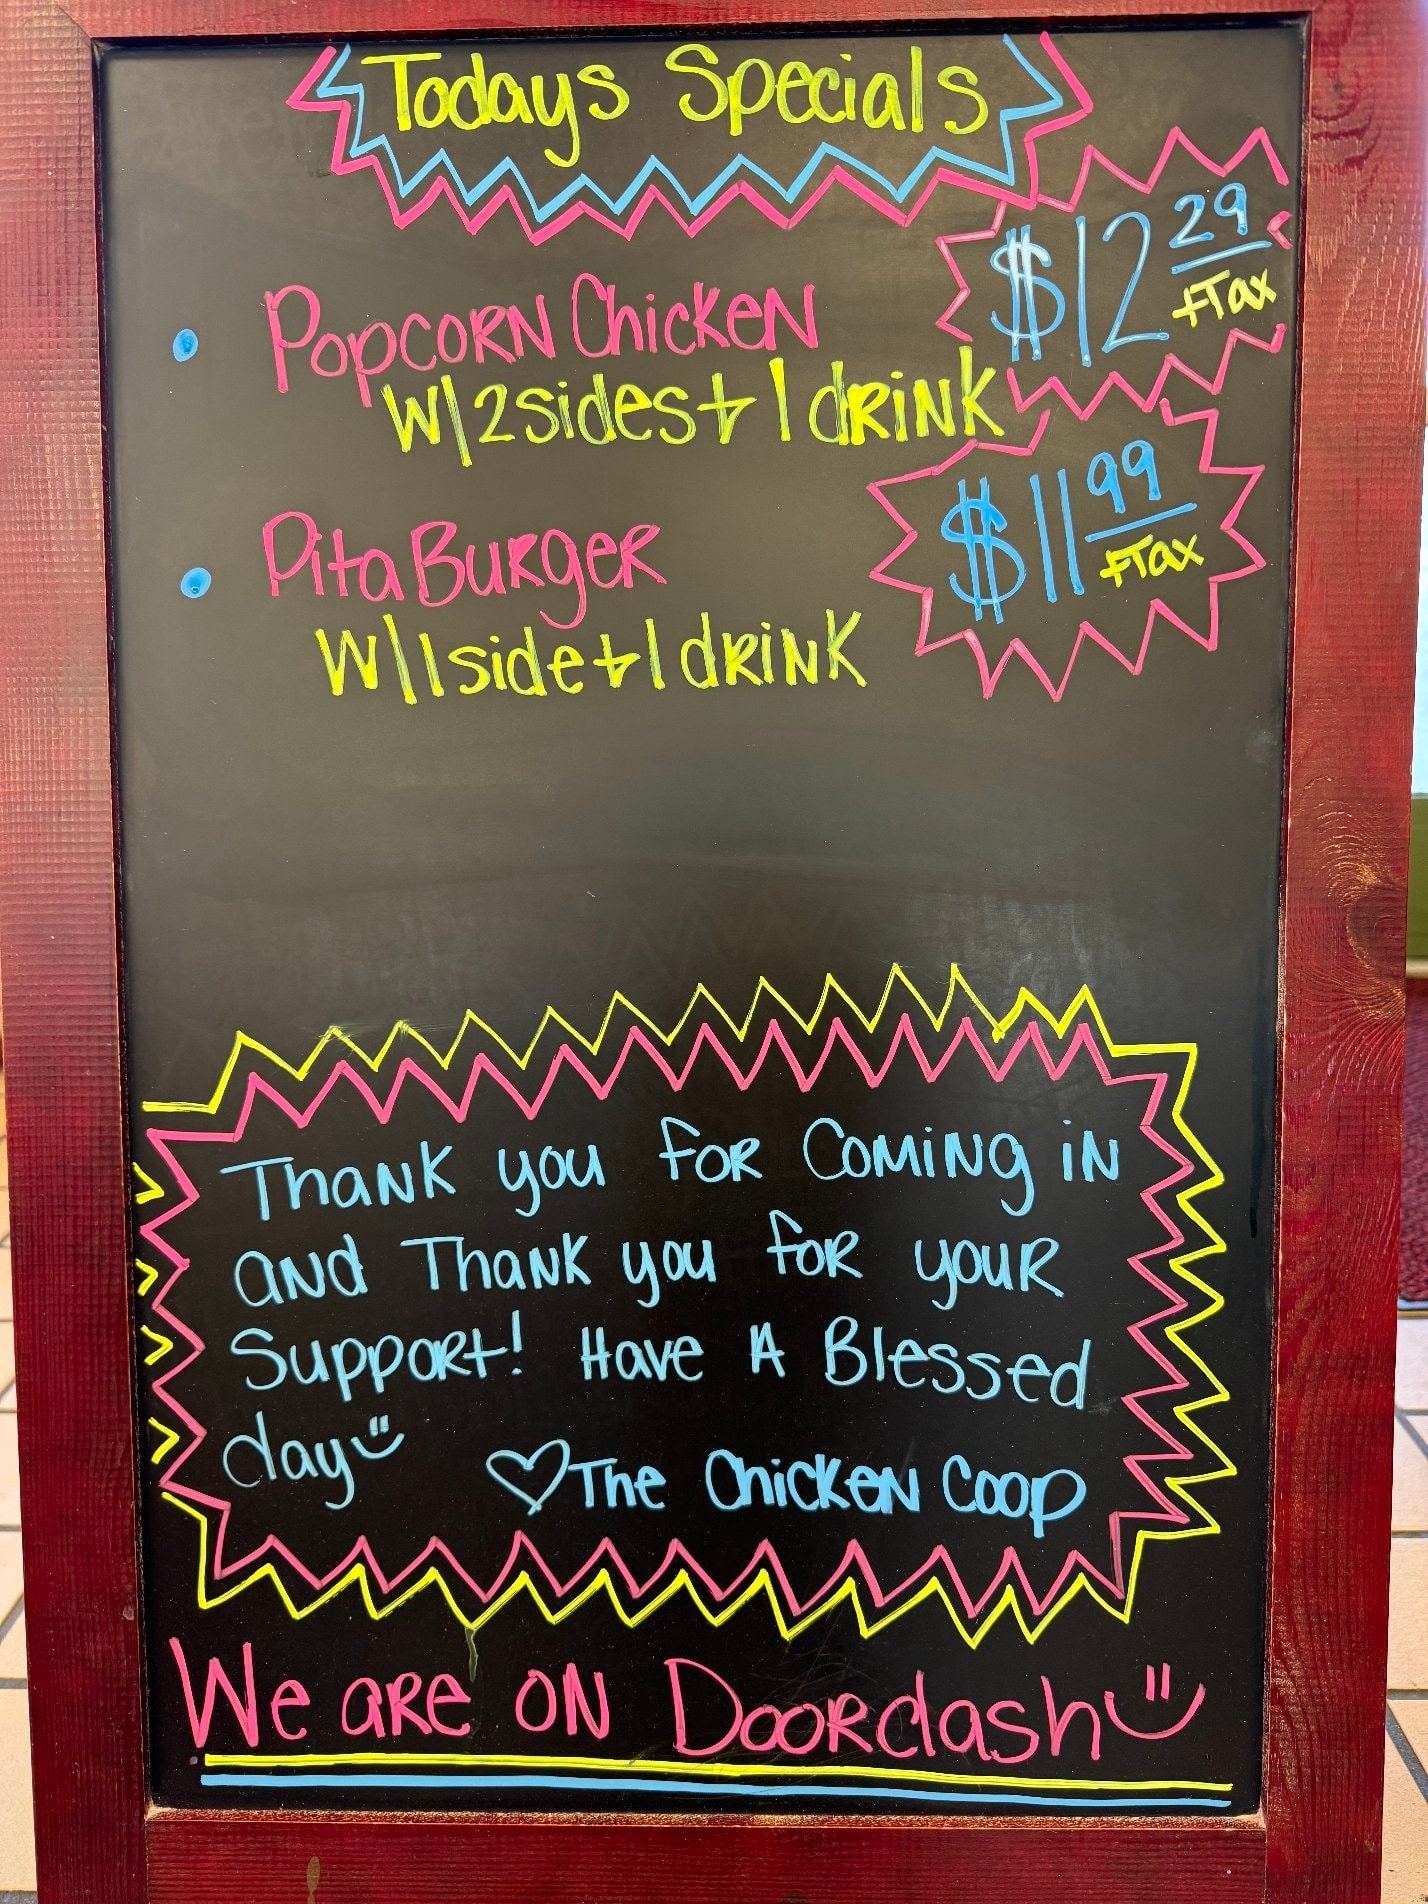 Todays Specials
• Popcorn Chicken $12 29 +Tax
w/2sides + 1 drink
• Pita Burger $11 99 +Tax
w/1side + 1 drink
Thank you for Coming in
and Thank you for your
Support! Have A Blessed
day
The Chicken Coop
We are on Doordash